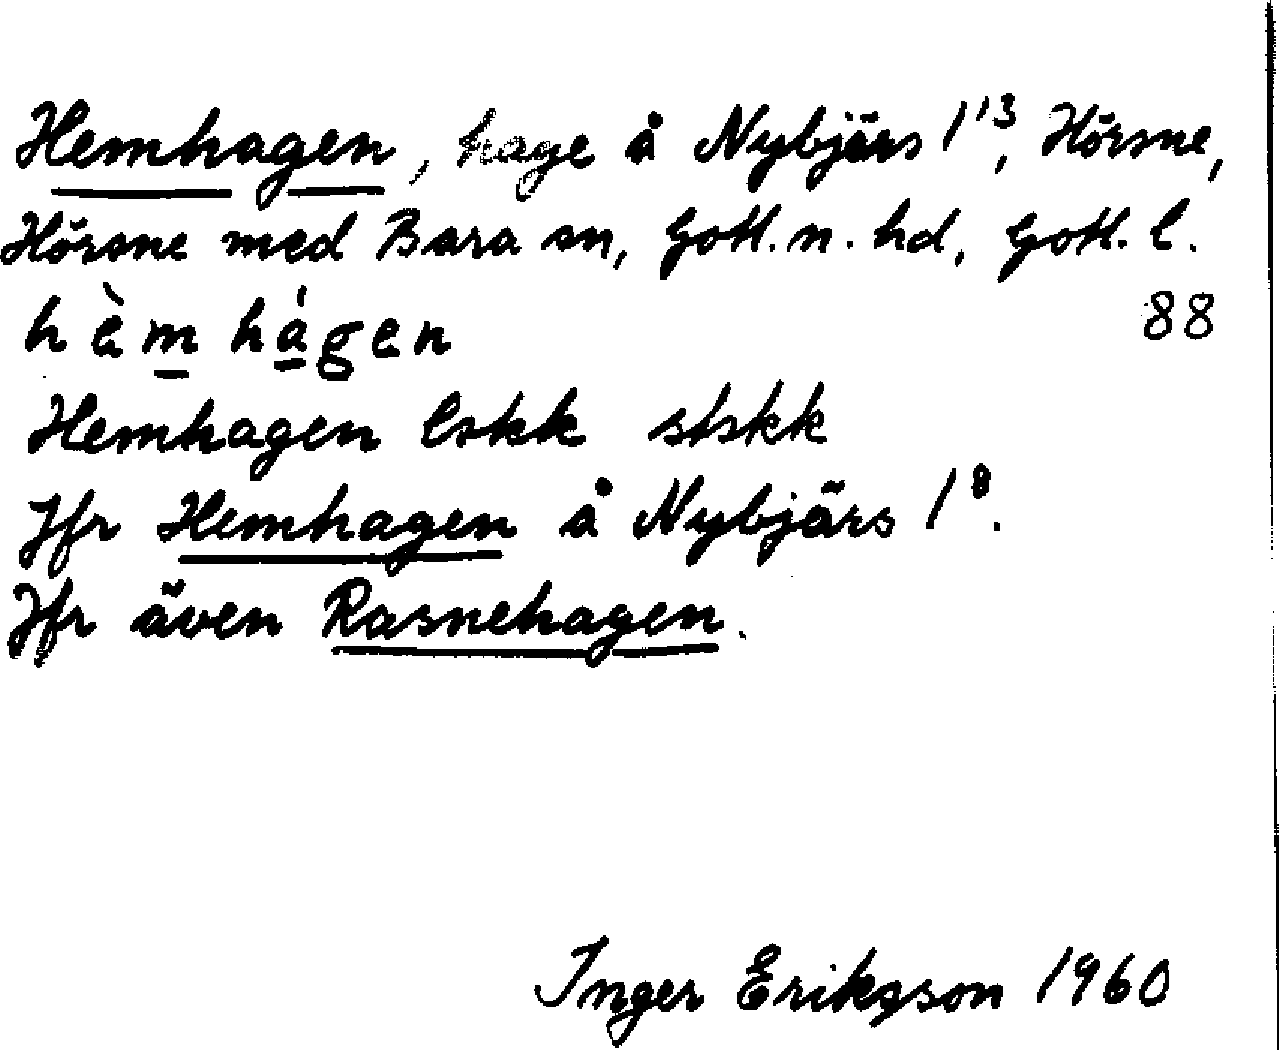 Hemhagen, hage å Nybjärs 1¹³, Hörsne,
Hörsne med Bara sn, Gotl. n. hd, Gotl. l.
hèmhágen 88
Hemhagen lskk stskk
Jfr Hemhagen å Nybjärs 1⁸.
Jfr även Rasnehagen.
Inger Eriksson 1960